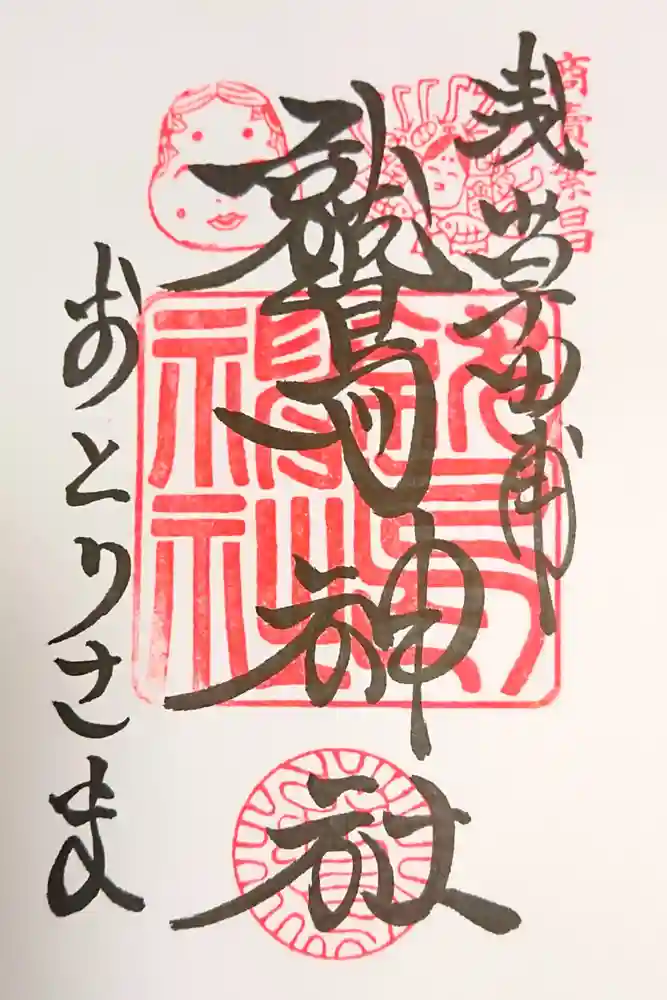 浅草田甫
商売繁昌
鷲神社
おとりさま